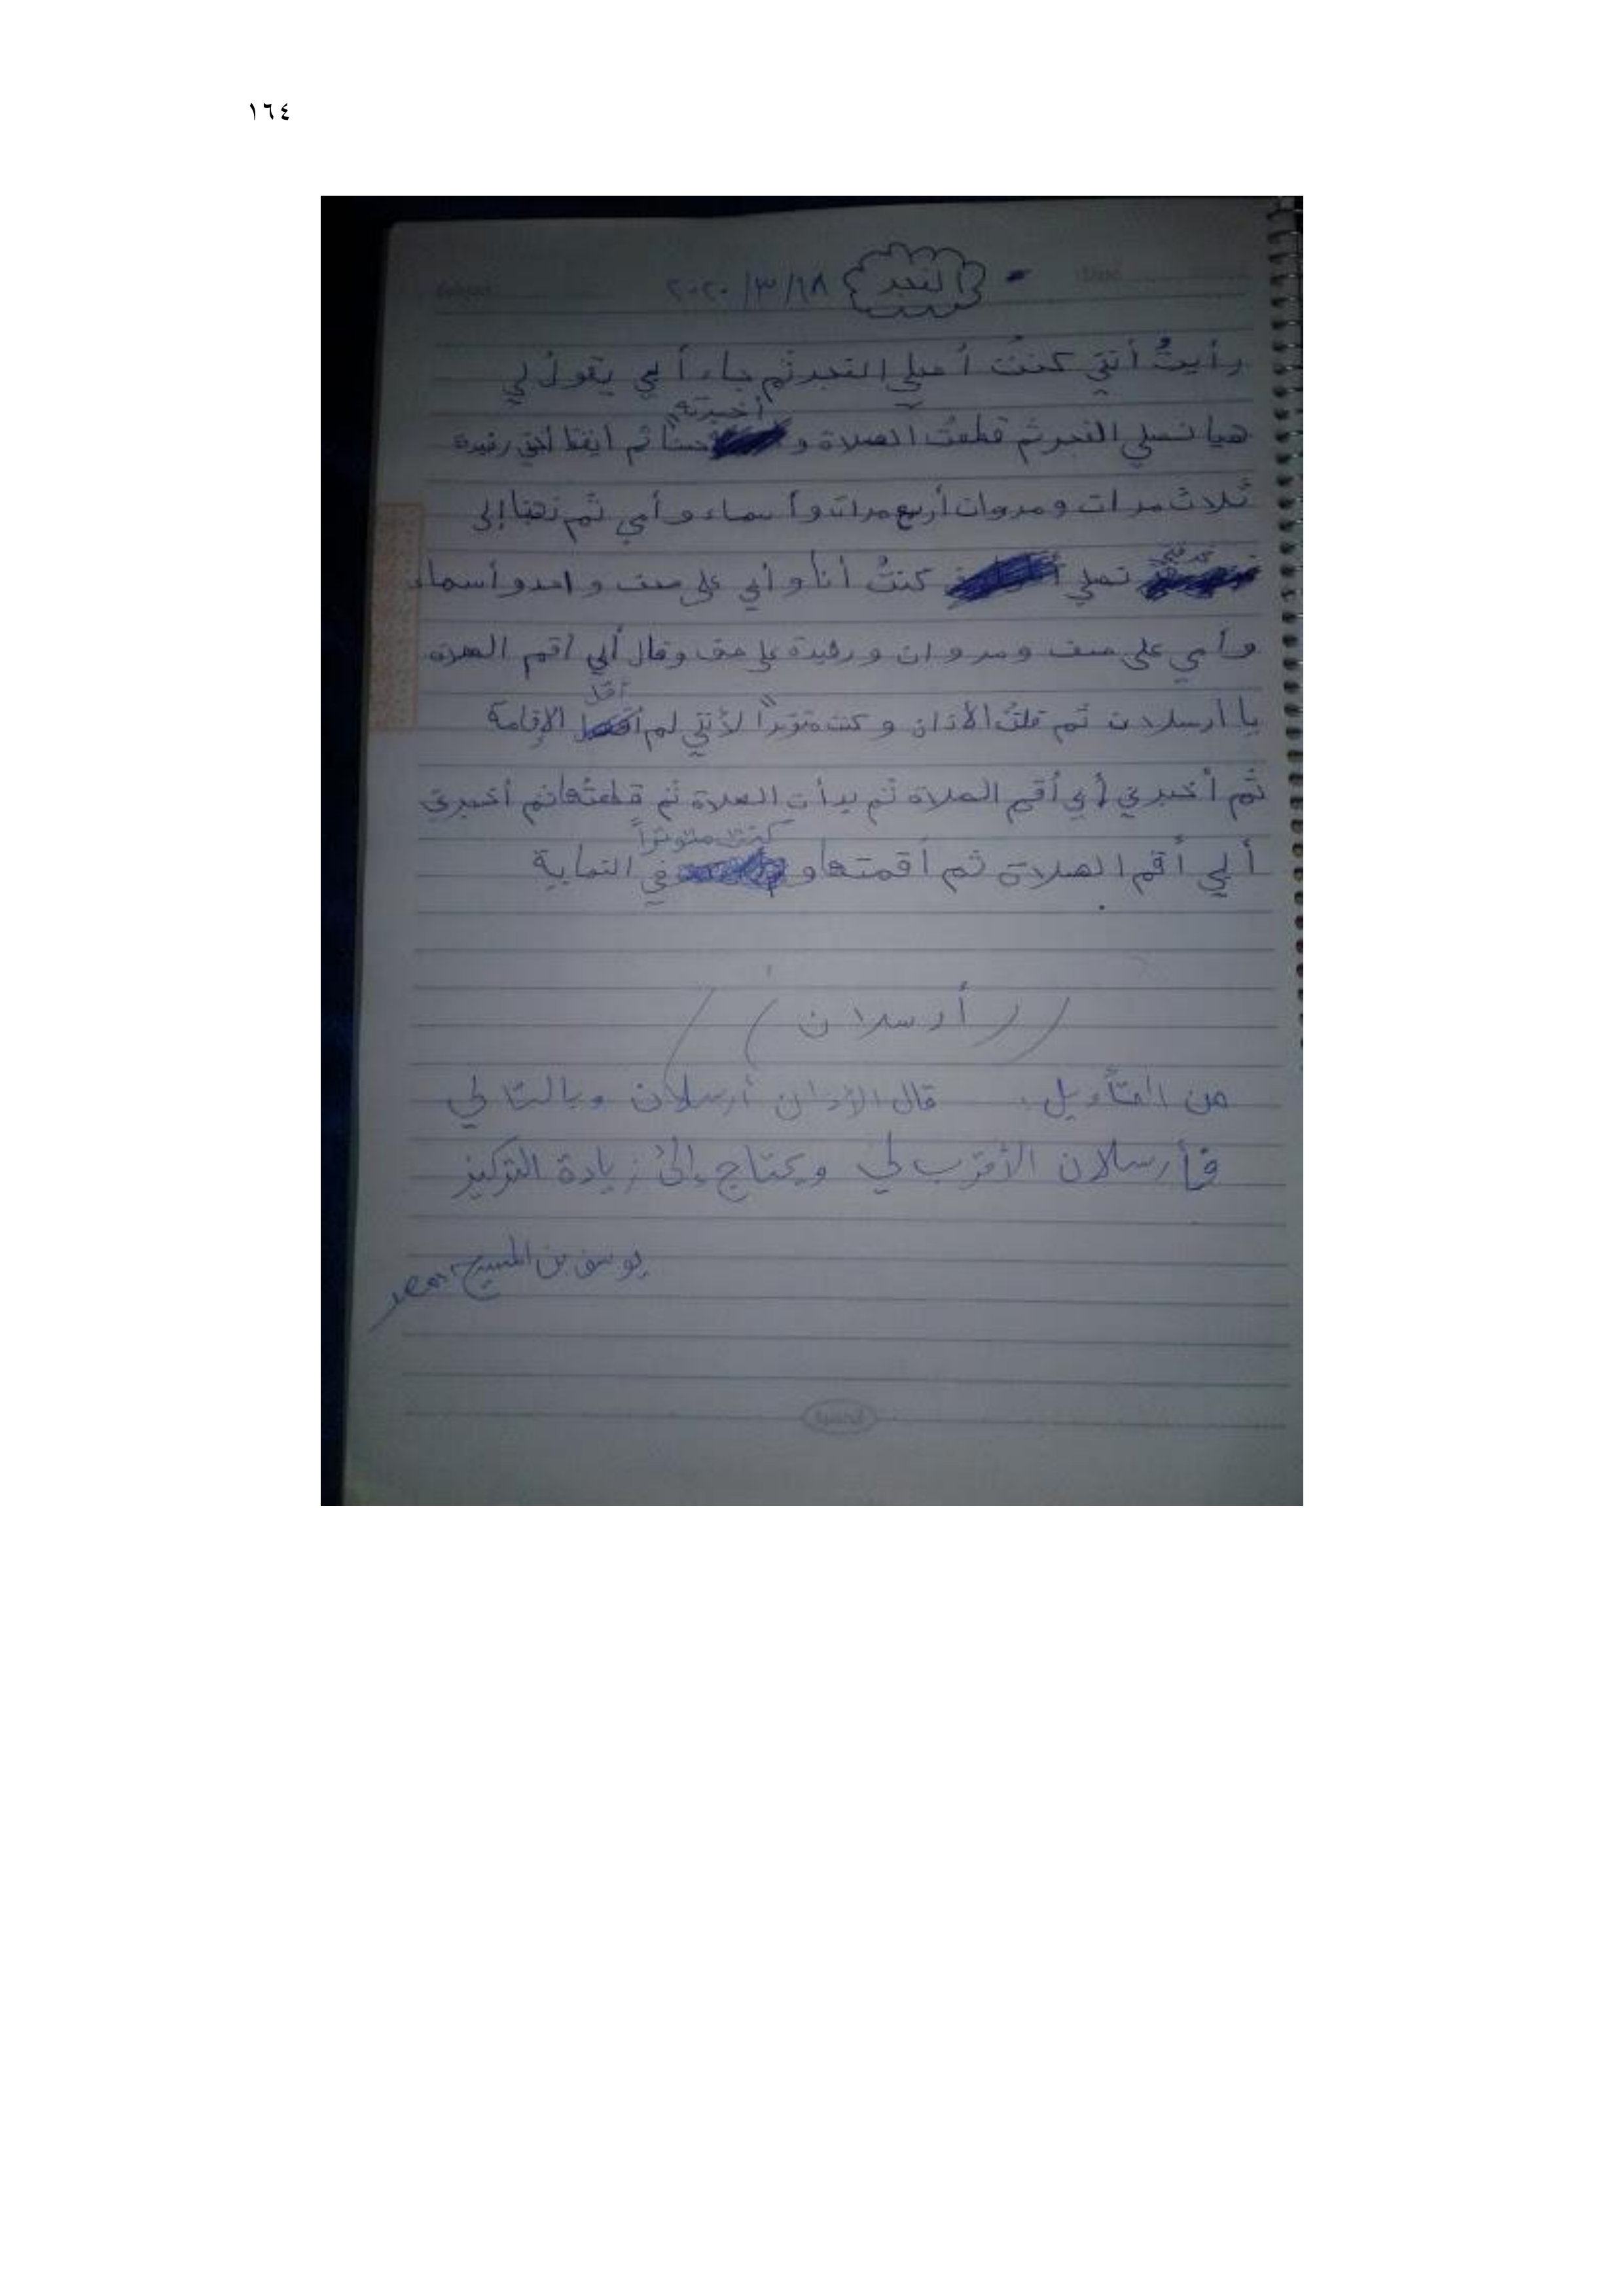 ١٦٤
- الفجر ٢٠٢٠/٣/٢٨
رأيتُ أنّني كنتُ أصلي الفجر ثم جاء أبي يقول لي
هيا نصلي الفجر ثم قطعتُ الصلاة و أخبرته حسناً ثم أيقظ أختي رفيدة
ثلاث مرات ومروان أربع مرات وأسماء وأمي ثم ذهبنا إلى
نصلي كنتُ أنا وأبي على صف واحد وأسماء
وأمي على صف ومروان ورفيدة على صف وقال أبي أقم الصلاة
يا أرسلان ثم قلتُ الأذان وكنت متوتراً لأنّني لم أقل الإقامة
ثم أخبرني أبي أقم الصلاة ثم بدأت الصلاة ثم قطعتُها ثم أخبرني
أبي أقم الصلاة ثم أقمتها و كنت متوتراً في النهاية
((أرسلان))
من التأويل: قال الأذان أرسلان وبالتالي
فأرسلان الأقرب لي ويحتاج إلى زيادة التركيز
يوسف بن المسيح